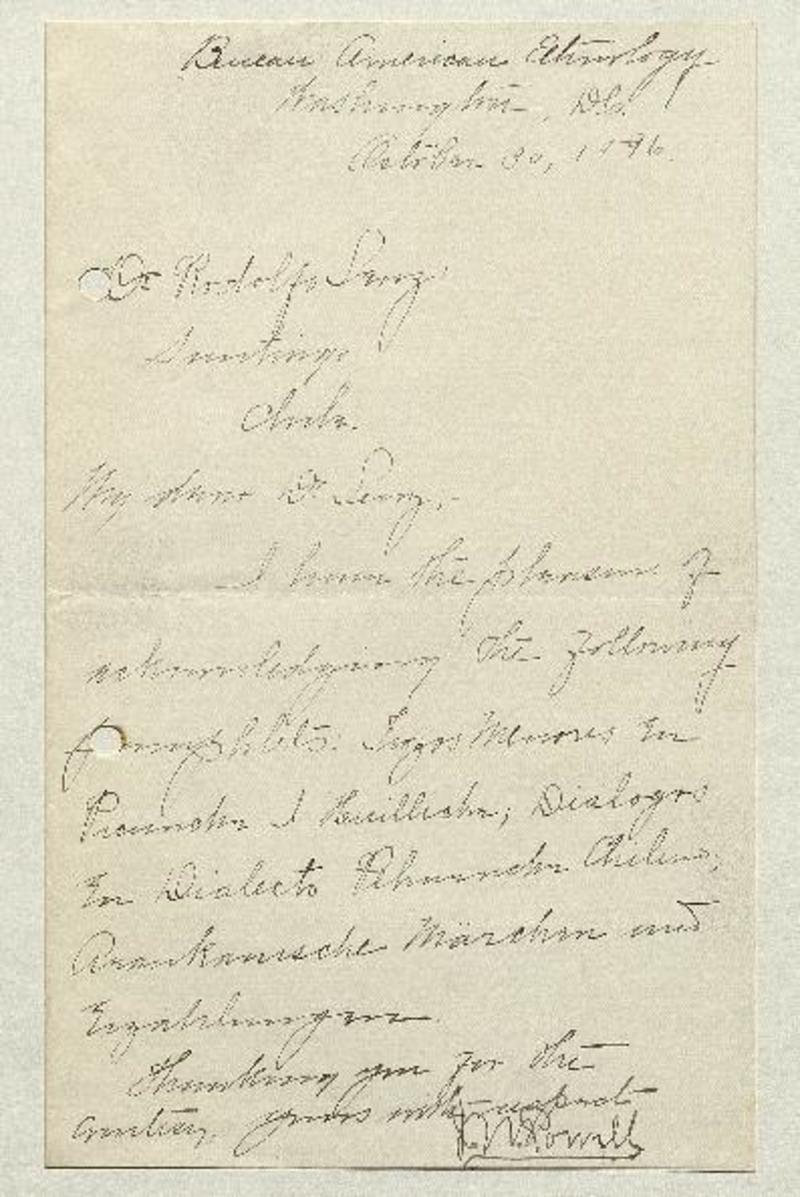 Bureau American Ethnology
Washington, D.C.
October 30, 1896.
Dr Rodolfo Lenz
Santiago
Chile.
My dear Dr Lenz,
I have the pleasure of
acknowledging the following
pamphlets: Trozos Menores En
Picunche I Huilliche; Dialogos
En Dialecto Pehuenche Chileno;
Araukanische Märchen und
Erzahlungen.
Thanking you for the
courtesy, yours with respect
J. W. Powell